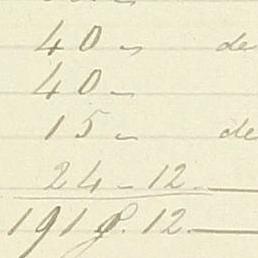 40 „ de
40 „
15 „ de
24 - 12.
191 12.